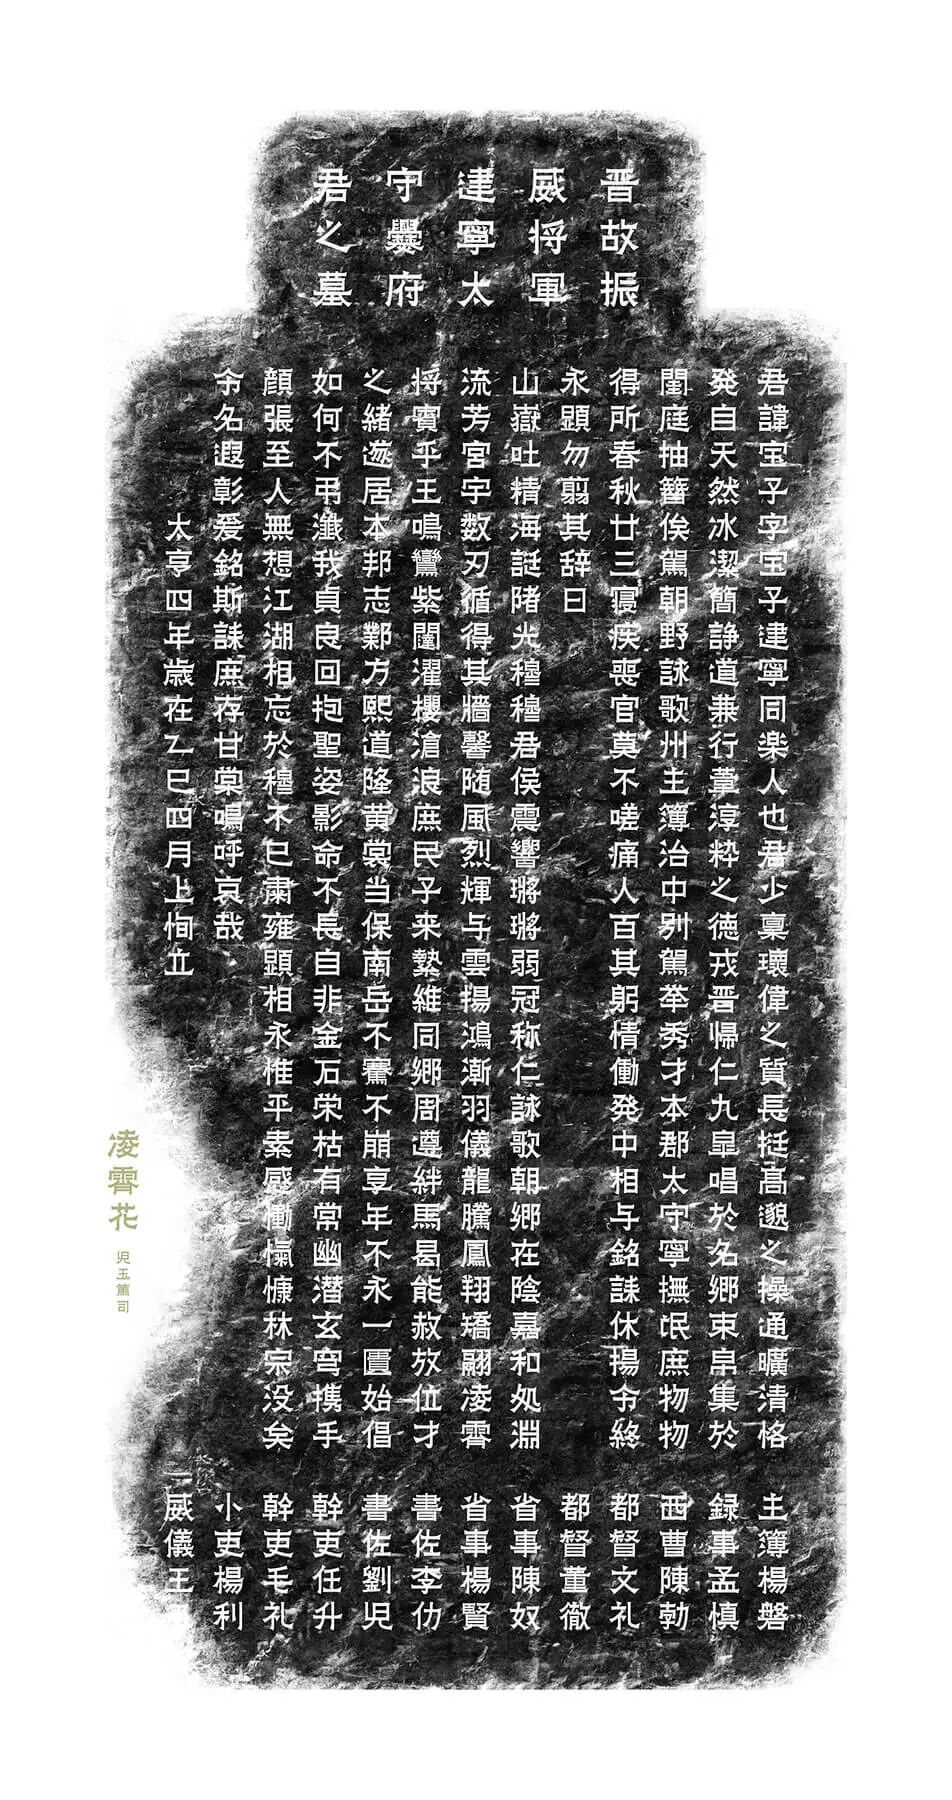 晋故振
威将軍
建寧太
守爨府
君之墓
君諱宝子字宝子建寧同楽人也君少稟瓌偉之質長挺高邈之操通曠清恪
発自天然冰潔簡静道兼行葦淳粋之徳戎晋帰仁九皐唱於名郷束帛集於
閨庭抽簪俟駕朝野詠歌州主簿治中別駕挙秀才本郡太守寧撫氓庶物物
得所春秋廿三寝疾喪官莫不嗟痛人百其躬情慟発中相与銘誄休揚令終
永顕勿翦其辞曰
山嶽吐精海誕陼光穆穆君侯震響鏘鏘弱冠称仁詠歌朝郷在陰嘉和処淵
流芳宮宇数刃循得其牆馨随風烈輝与雲揚鴻漸羽儀龍騰鳳翔矯翮凌霄
将賓乎王鳴鸞紫闥濯櫻滄浪庶民子来縶維同郷周遵絆馬曷能赦放位才
之緒遂居本邦志鄴方熙道隆黄裳当保南岳不騫不崩享年不永一匱始倡
如何不弔殲我貞良回抱聖姿影命不長自非金石栄枯有常幽潜玄穹携手
顔張至人無想江湖相忘於穆不已粛雍顕相永惟平素感慟忼慷林宗没矣
令名遐彰爰銘斯誄庶存甘棠鳴呼哀哉
太亨四年歳在乙巳四月上恂立
主簿楊磐
録事孟慎
西曹陳勃
都督文礼
都督董徹
省事陳奴
省事楊賢
書佐李仂
書佐劉児
幹吏任升
幹吏毛礼
小吏楊利
威儀王
凌霄花
児玉篤司